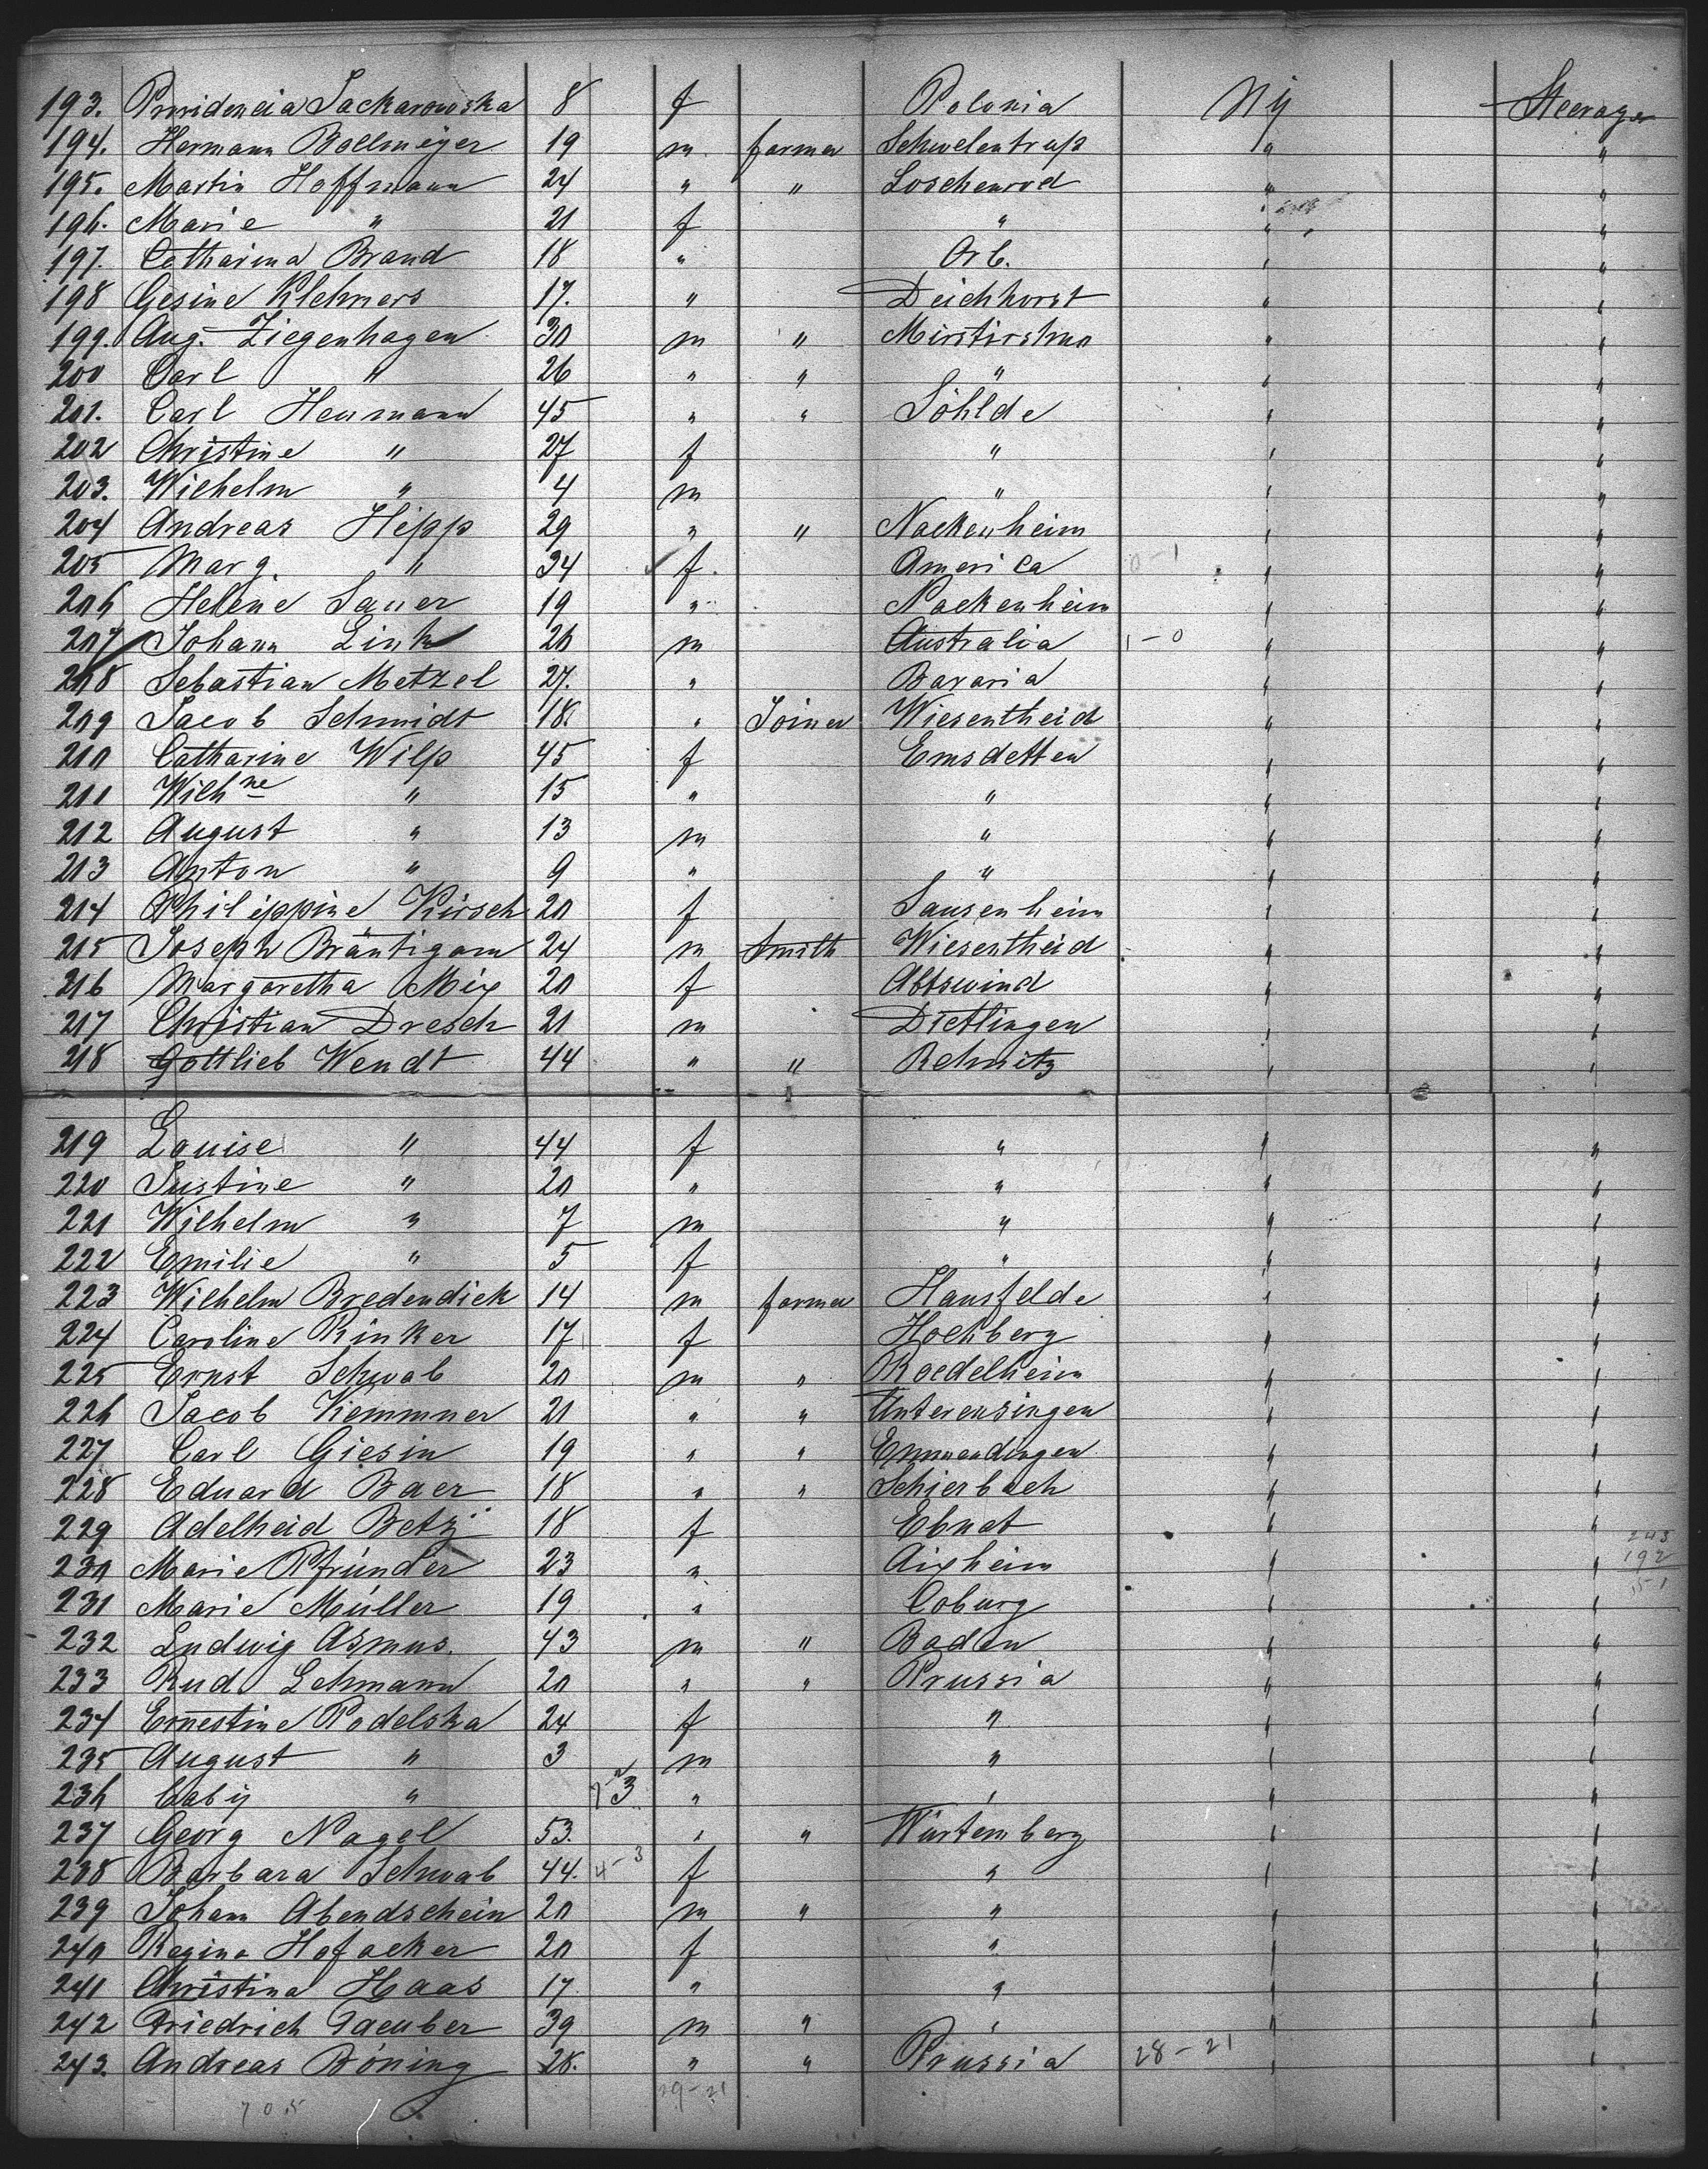 193. Providencia Sackarowska 8 f Polonia NY Steerage
194. Hermann Bollmeyer 19 m farmer Schwelentrup " "
195. Martin Hoffmann 24 " " Loschenrod " "
196. Marie " 21 f " " "
197. Catharina Brand 18 " Orb. " "
198 Gesine Klehmers 17. " Deichhorst " "
199. Aug. Ziegenhagen 30 m " " "
200 Carl " 26 " " " " "
201. Carl Heumann 45 " " Söhlde " "
202 Christine " 27 f " " "
203. Wilhelm " 4 m " " "
204 Andreas Hipp 29 " " Nackenheim " "
205 Marg. " 34 f. America 0-1 " "
206 Helene Sauer 19 " Nackenheim " "
207 Johann Link 26 m Australia 1-0 " "
208 Sebastian Metzel 27. " Bavaria " "
209 Jacob Schmidt 18. " Joiner Wiesentheid " "
210 Catharine Wilp 45 f Emsdetten " "
211 Wilhne " 15 " " " "
212 August " 13 m " " "
213 Anton " 9 " " " "
214 Philippine Kirsch 20 f Sausenheim " "
215 Joseph Bräutigam 24 m Smith Wiesentheid " "
216 Margaretha Mix 20 f Abtswind " "
217 Christian Dresch 21 m Dietlingen " "
218 Gottlieb Wendt 44 " " Rehnitz " "
219 Louise " 44 f " " "
220 Justine " 20 " " " "
221 Wilhelm " 7 m " " "
222 Emilie " 5 f " " "
223 Wilhelm Bredendick 14 m farmer Hansfelde " "
224 Caroline Rinker 17 f Hochberg " "
225 Ernst Schwab 20 m " Roedelheim " "
226 Jacob Kemmner 21 " " Unterensingen " "
227 Carl Giesin 19 " " Emmendingen " "
228 Eduard Baer 18 " " Schierbach " "
229 Adelheid Betz 18 f Ebnat " "
243
230 Marie Pfründer 23 " Aixheim " " 192
51
231 Marie Müller 19 " Coburg " "
232 Ludwig Asmus. 43 m " Baden " "
233 Rud. Lehmann 20 " " Prussia " "
234 Ernestine Podelska 24 f " " "
235 August " 3 m " " "
236 Baby " 3 " " " "
237 Georg Nagel 53. " " Würtemberg " "
238 Barbara Schwab 44. 4-3 f " " "
239 Johann Abendschein 20 m " " " "
240 Regina Hofacker 20 f " " "
241 Christina Haas 17. " " " "
242 Friedrich Taeuber 39 m " " " "
243. Andreas Böning 28. " " Prussia 28-21 " "
705 29-21